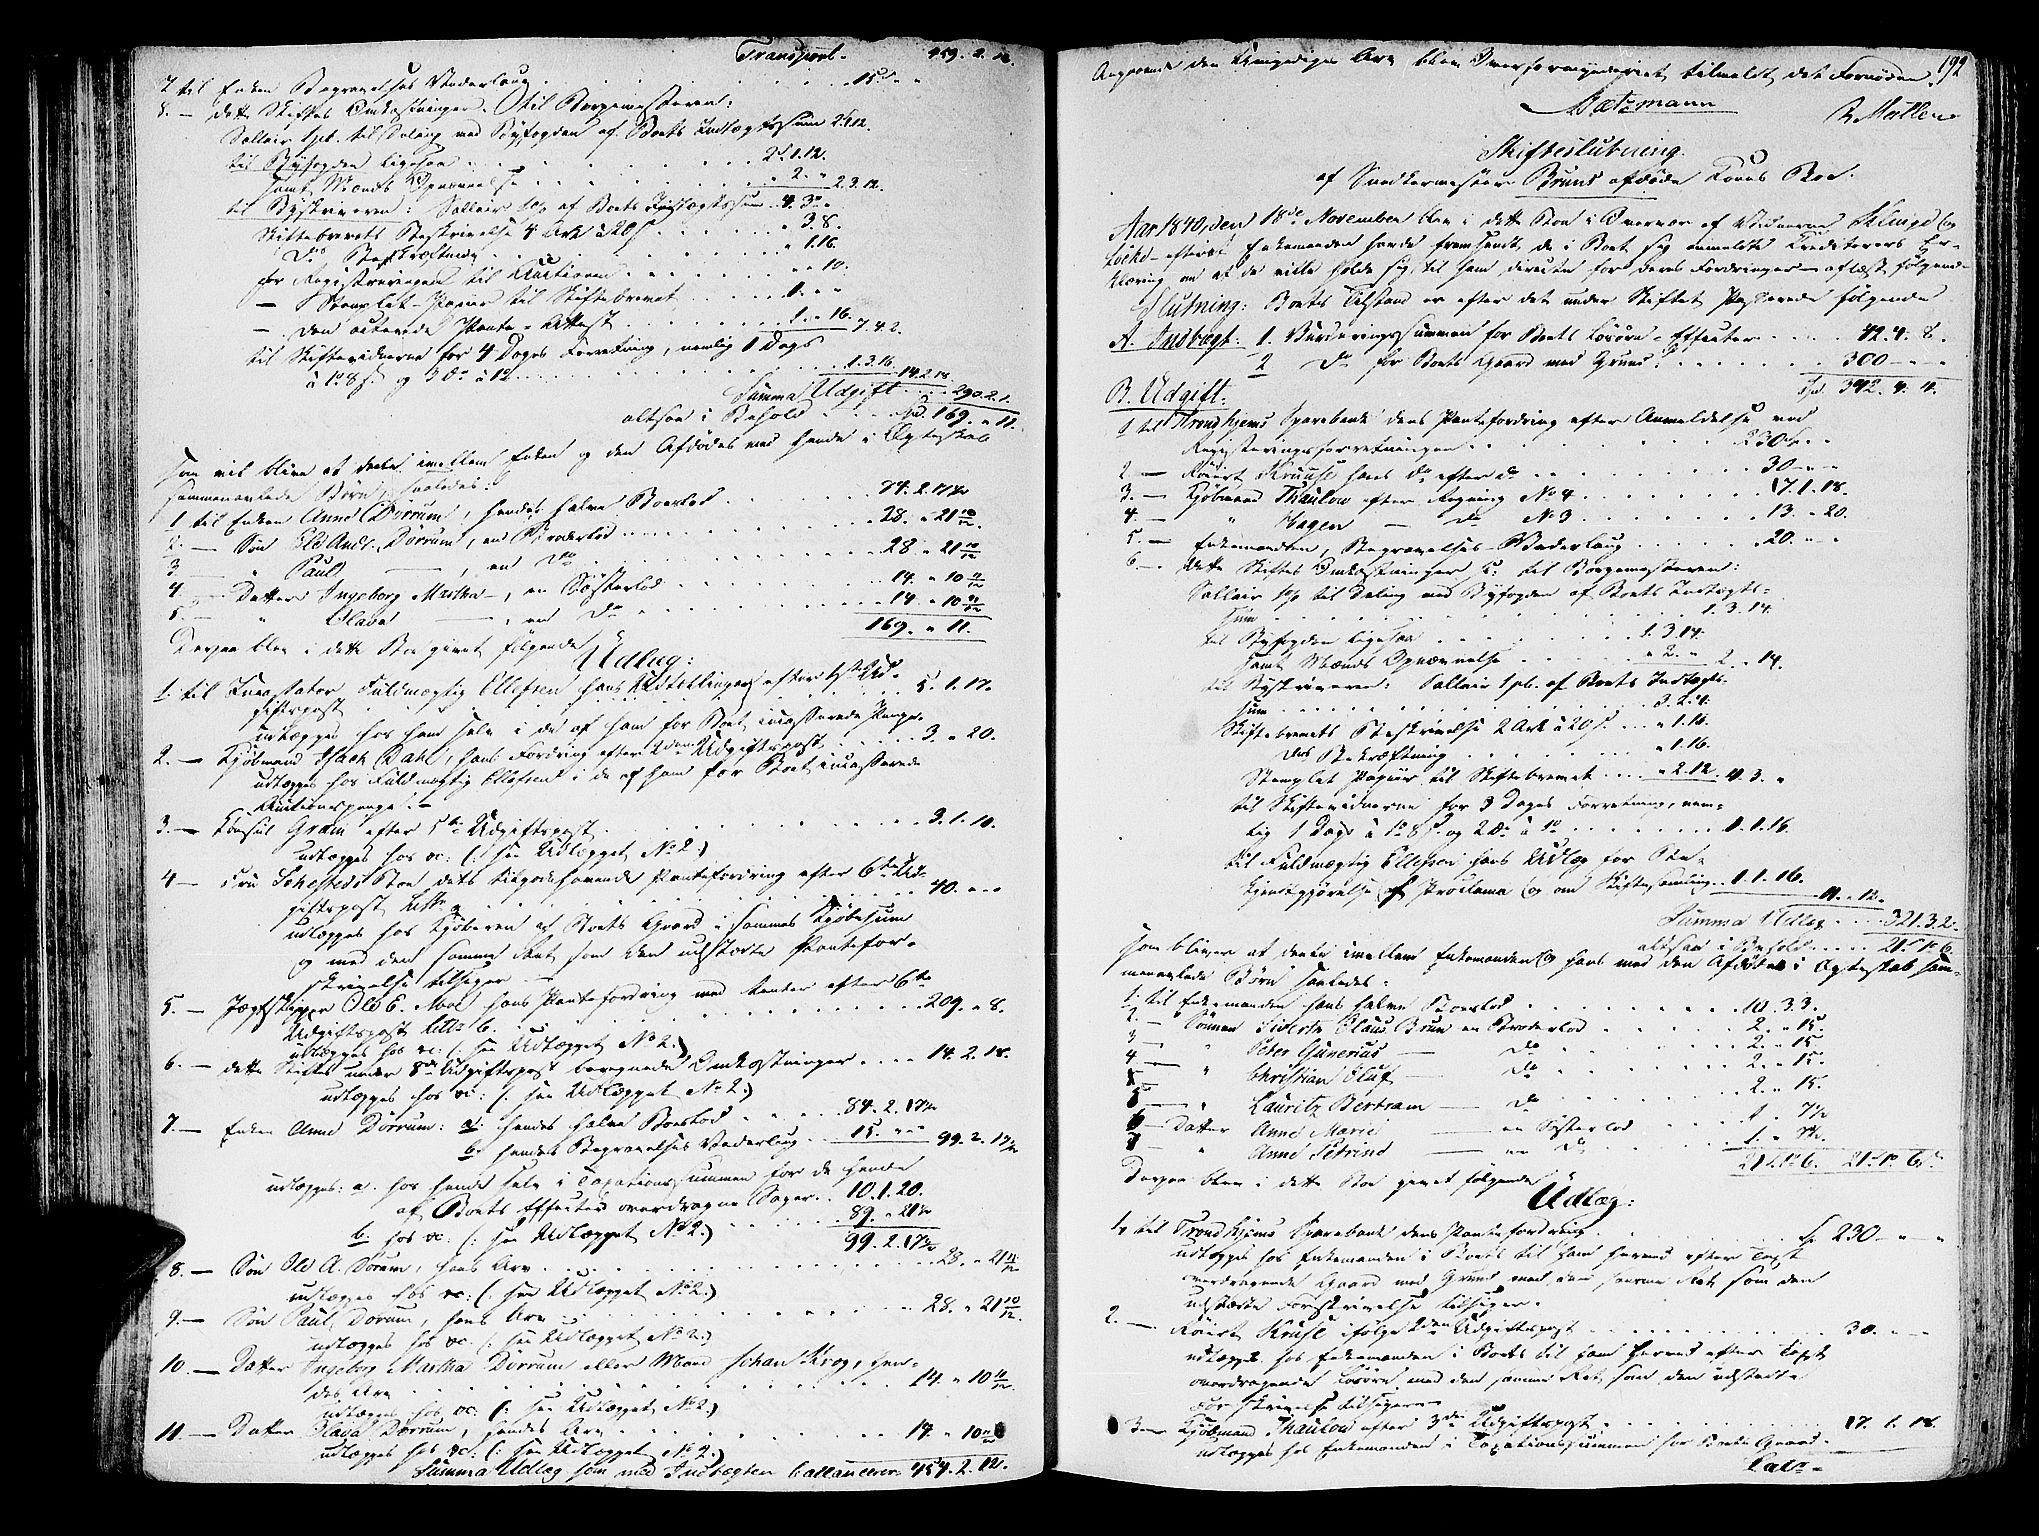 Transport. 459. 2. 12.
7 til Enken Begravelses Vederlaug . . . 15. " "
8. — dette Skiftes Omkostninger. til Borgemesteren:
Sallair 1pCt. til Deling med Byfogden af Boets Indtægtssum 2.1.12.
til Byfogden ligesaa . . . 2.1.12.
samt Mænds Opnævnelse . . . " 2. " 2.3.12.
til Byskriveren: Sallair 1 p% af Boets Indtægtssum 4. 3. "
Skiftebrevets Beskrivelse 4 Ark à 20 s. . . . " 3.8.
Dets Bekræftning . . . " 1.16.
for Registreringen til Auctionen . . . " " 10.
— Stemplet Papiir til Skiftebrevet . . . 1. " "
— den erhvervede Pante-Attest . . . 1. " 16. 7.4.2.
til Skiftevidnerne for 4 Dages Forretning, nemlig 1 Dags
à 1 8 s. og 3 Do à 1 . . . 1.3.16. 14.2.18.
Summa Udgift . . . 290.2.1.
altsaa i Behold . . . Spd. 169. " 11.
som vil blive at deele imellem Enken og den Afdødes med hende i Ægteskab
sammenavlede Børn, saaledes:
1 til Enken Anne Dorrum, hendes halve Boeslod . . . 84. 2. 17½
2. — Søn Ole Andr. Dorrum, en Broderlod . . . 28. " 21 10/12.
3. — " Paul —, en do . . . 28 " 21 10/12
4 — Datter Ingeborg Martha —, en Søsterlod . . . 14. " 10 11/12
5. — " Olava —, en Do . . . 14 " 10 11/12
169. " 11.
Derpaa blev i dette Boe givet følgende
Udlæg:
1. til Incassator Fuldmægtig Ellefsen hans Udtællinger efter 1ste Ud-
giftspost . . . 5. 1. 17.
udlægges hos ham selv i de af ham for Boet incasserede Penge.
2. — Kjøbmand Isach Dahl, hans Fordring efter 2den Udgiftspost . . . 3. " 20.
udlægges hos Fuldmægtig Ellefsen i de af ham for Boet incasserede
Auctionspenge. —
3. — Consul Gram efter 5te Udgiftspost . . . 3. 1. 10.
udlægges hos &c: (: see Udlægget No 2.)
4 — Fru Schesteds Boe dets tilgodehavende Pantefordring efter 6te Ud-
giftspost Litr. a . . . 40. " "
udlægges hos Kjøberen af Boets Gaard i sammes Kjøbesum
og med den samme Ret som den udstædte Pantefor-
skrivelse tilsiger —
5. — Jægtskipper Ole E. Moe, hans Pantefordring med Renter efter 6te
Udgiftspost Littr. b. . . . 209. " 8.
udlægges hos &c: (: see Udlægget No 2.)
6. — dette Skiftes under 8de Udgiftspost beregnede Omkostninger . . . 14. 2. 18.
udlægges hos &c: (: see Udlægget No 2.)
7. — Enken Anne Dorrum: a: hendes halve Boeslod . . . 84. 2. 17½
b: hendes Begravelses Vederlaug . . 15. " " 99. 2. 17½
udlægges: a. hos hende selv i Taxationssummen for de hende
af Boets Effecter overdragne Sager . . 10. 1. 20.
b. hos &c: (: see Udlægget No 2.) . . . 89. " 21½
99. 2. 17½
8. — Søn Ole A. Dorrum, hans Arv . . . 28. " 21 10/12
udlægges hos &c: (: see Udlægget No 2.)
9. — Søn Paul Dorrum, hans Arv . . . 28. " 21 10/12.
udlægges hos &c: (: see Udlægget No 2.)
10. — Datter Ingeborg Martha Dorrum eller Mand Johan Krog, hen-
des Arv . . . 14. " 10 11/12.
udlægges hos &c: (: see Udlægget No 2.)
11 — Datter Olava Dorrum, hendes Arv . . . 14. " 10 11/12
udlægges hos &c: (: see Udlægget No 2.)
Summa Udlæg som med Indtægten ballancerer 459. 2. 12.
Angaaende den Umyndiges Arv blev Overformynderiet tilmeldt det Fornødne. 192
Matzmann R Møller
Skifteslutning.
af Snedkermester Bruns afdøde Kones Boe.
Aar 1840, den 18de November blev i dette Boe i Overvær af Vidnerne Klingd og
Loche — efterat Enkemanden havde fremsendt de i Boet sig anmeldte Creditorers Er-
klæring om at de ville holde sig til ham directe for deres Fordringer — aflæst følgende
Slutning: Boets Tilstand er efter det under Skiftet Passerede følgende
A. Indtægt: 1. Vurderingssummen for Boets Løsøre-Effecter . . . 42. 4. 8.
2 Do for Boets Gaard med Grund . . . 300 — " "
Spd. 342. 4. 8.
B. Udgift:
1 til Trondhjems Sparebank dens Pantefordring efter Anmeldelse ved
Registreringsforretningen . . . 230. " "
2. — Kruuse hans do efter do . . . 30 — " "
3. — Kjøbmand Thaulow efter Regning No 4 . . . 17. 1. 18.
4. — " Hagen — do No 3 . . . 13. " 20.
5. — Enkemanden, Begravelses-Vederlaug . . . 20. " "
6 — dette Skiftes Omkostninger &: til Borgemesteren:
Sallair 1 p% til Deling med Byfogden af Boets Indtægts-
sum . . . 1. 3. 14.
til Byfogden ligesaa . . . 1. 3. 14.
samt Mænds Opnævnelse . . . " 2. " 2. " 14.
til Byskriveren: Sallair 1 pCt. af Boets Indtægts-
sum . . . 3. 2. 4.
Skiftebrevets Beskrivelse 2 Ark à 20 s. . . . " 1. 16.
Dets Bekræftning . . . " 1. 16.
Stemplet Papiir til Skiftebrevet . . . " 2. 12. 4. 3. "
til Skiftevidnerne for 3 Dages Forretning, nem-
lig 1 Dags à 1 8 s. og 2 Do à 1 . . . 1. 1. 16.
til Fuldmægtig Ellefsen hans Udlæg for Be-
kjendtgjørelse af Proclama og om Skiftesamling . . 1. 1. 16.
11. " 12.
Summa Udlæg . . . 321. 3. 2.
altsaa i Behold . . . 21. 1. 6.
som bliver at deele imellem Enkemanden og hans med den Afdøde i Ægteskab sam-
menavlede Børn saaledes:
1. til Enkemanden hans halve Boeslod . . . 10. 3. 3.
2 — Sønnen Claus Brun en Broderlod . . . 2. " 15.
3 — " Peter Gunerius — Do . . . 2. " 15
4 — " Christian Oluf — Do . . . 2. " 15.
5 — " Lauritz Bertram — Do . . . 2. " 15.
6 — Datter Anne Marie — en Søsterlod . . . 1 " 7½
7 — " Anne Petrine — en Do . . . 1. " 7½.
21. 1. 6. 21. 1. 6.
Derpaa blev i dette Boe givet følgende
Udlæg:
1, til Trondhjems Sparebank dens Pantefordring . . . Sp. 230 — " "
udlægges hos Enkemanden i Boets til ham herved efter Taxt
overdragende Gaard med Grund med den samme Ret som den
udstædte Forskrivelse tilsiger.
2. — Kruse ifølge 2den Udgiftspost . . . 30. " "
udlægges hos Enkemanden i Boets til ham herved efter Taxt
overdragende Løsøre med den samme Ret som den udstedte
Forskrivelse tilsiger
3. — Kjøbmand Thaulow efter 3die Udgiftspost . . . 17. 1. 18.
udlægges hos Enkemanden i Taxationssummen for Boets Gaard.